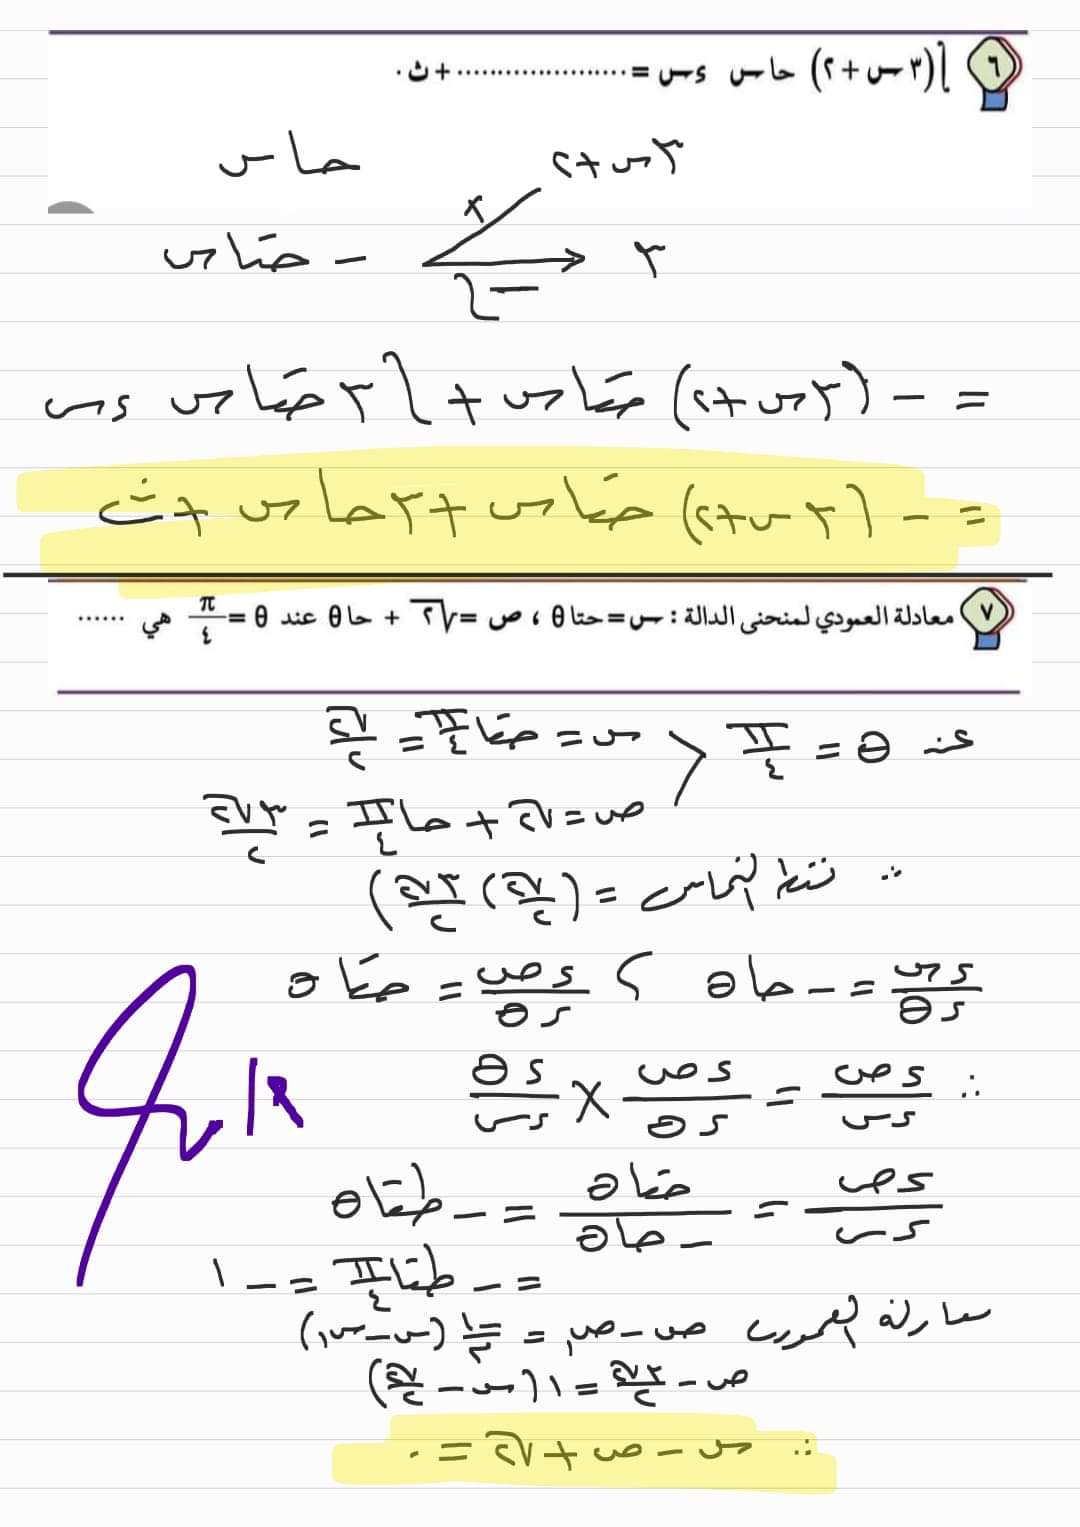 ٦ ∫(٣س+٢) حاس ءس = .....................+ث.
٣س+٢ حاس
+
٣ -حتاس
-∫
= -(٣س+٢) حتاس + ∫٣حتاس ءس
= -(٣س+٢) حتاس +٣حاس +ث
٧ معادلة العمودي لمنحنى الدالة : س=حتاθ ، ص =√٢ + حاθ عند θ = π/٤ هي ......
عند θ = π/٤ > س = حتاπ/٤ = √٢/٢
ص = √٢ + حاπ/٤ = ٣√٢/٢
∴ نقطة التماس = (√٢/٢ ، ٣√٢/٢)
ءس/ءθ = -حاθ ، ءص/ءθ = حتاθ
∴ ءص/ءس = ءص/ءθ × ءθ/ءس
ءص/ءس = حتاθ/-حاθ = -طتاθ
= -طتاπ/٤ = -١
معادلة العمودي ص-ص١ = -١/م (س-س١)
ص - ٣√٢/٢ = ١(س - √٢/٢)
∴ س - ص + √٢ = ٠